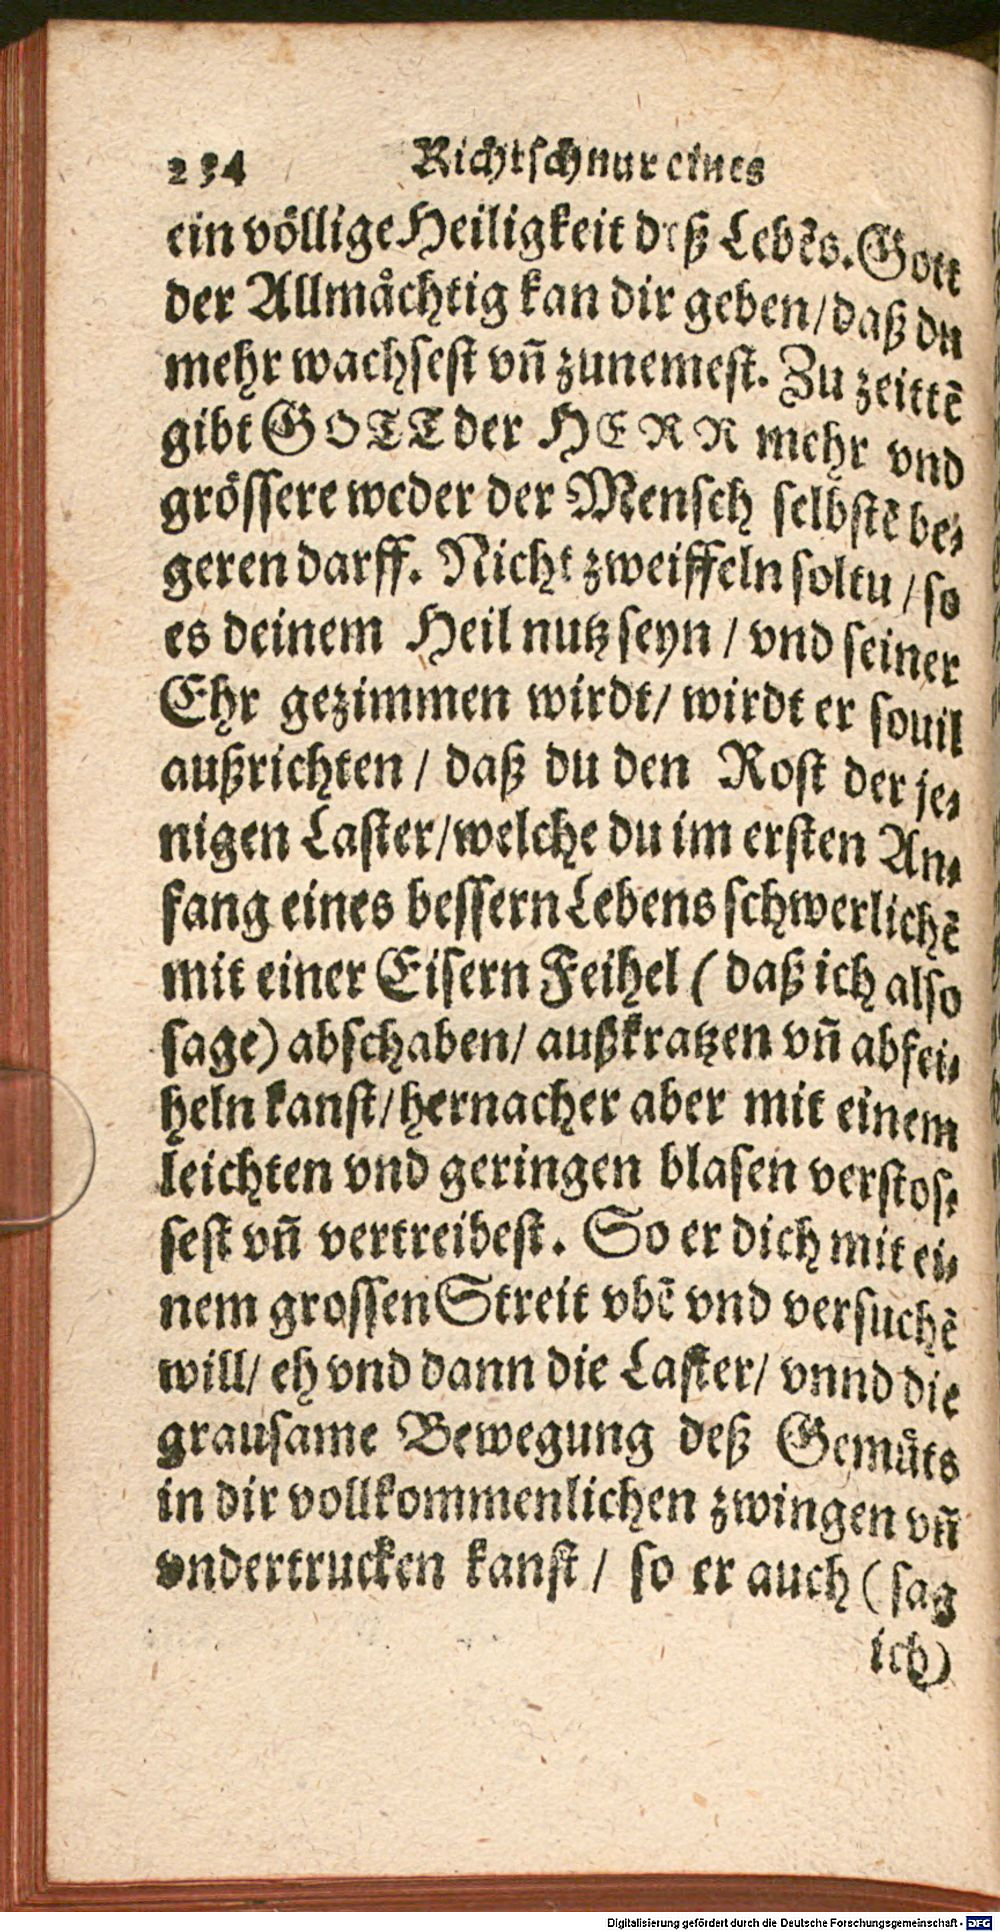 234 Richtschnur eines
ein völlige Heiligkeit deß Lebẽs. Gott
der Allmaͤchtig kan dir geben/ daß du
mehr wachsest vñ zunemest. Zu zeittẽ
gibt GOTT der HERR mehr vnd
grössere weder der Mensch selbstẽ be-
geren darff. Nicht zweiffeln soltu / so
es deinem Heil nutz seyn / vnd seiner
Ehr gezimmen wirdt/ wirdt er souil
außrichten / daß du den Rost der je-
nigen Laster/ welche du im ersten An-
fang eines bessern Lebens schwerlichẽ
mit einer Eisern Feihel ( daß ich also
sage) abschaben/ außkratzen vñ abfei-
heln kanst/ hernacher aber mit einem
leichten vnd geringen blasen verstos-
sest vñ vertreibest. So er dich mit ei-
nem grossen Streit vbẽ vnd versuchẽ
will/ eh vnd dann die Laster/ vnnd die
grausame Bewegung deß Gemuͤts
in dir vollkommenlichen zwingen vñ
vndertrucken kanst / so er auch ( sag
ich)
Digitalisierung gefördert durch die Deutsche Forschungsgemeinschaft - DFG